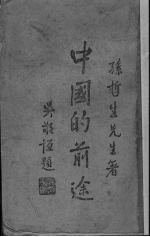 孫哲生先生著
中國的前途
吳敬恆題